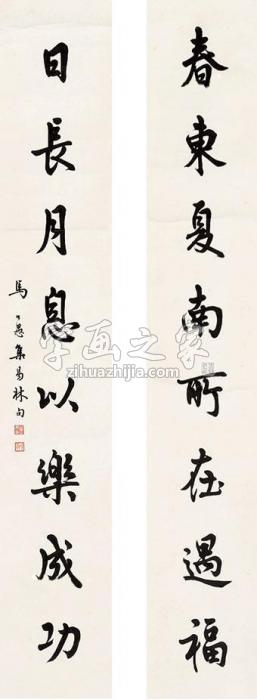 春東夏南所在遇福
日長月息以樂成功
馬公愚集易林句
字画之家
zihuazhijia.com